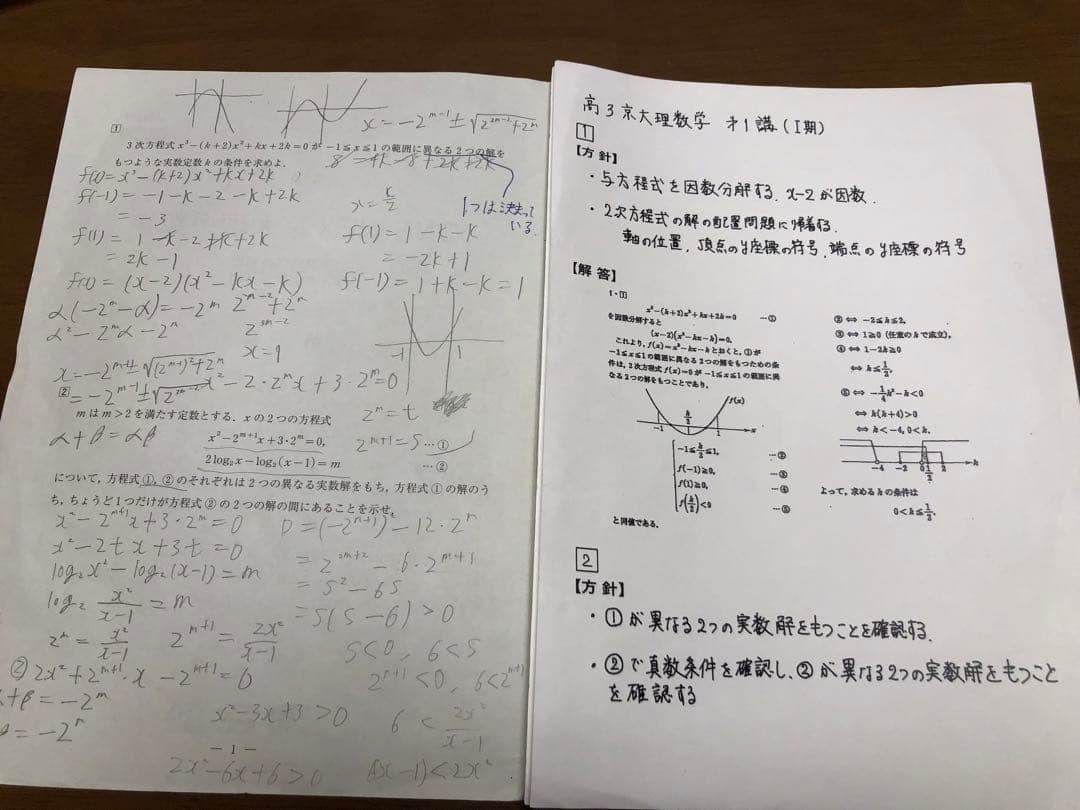 x=-2^{m-1}±√(2^{2m-2}+2^m)
1
3次方程式 x³-(k+2)x²+kx+2k=0 が -1≦x≦1 の範囲に異なる2つの解を
もつような実数定数kの条件を求めよ.
8-4k-8+2k+2k
f(x)=x³-(k+2)x²+kx+2k
f(-1)=-1-k-2-k+2k
=-3
x=k/2
1つは決まって
いる.
f(1)=1-k-2+k+2k
=2k-1
f(1)=1-k-k
=-2k+1
f(x)=(x-2)(x²-kx-k)
f(-1)=1+k-k=1
α(-2^m-α)=-2^m
2^{m-2}+2^m
α²-2^mα-2^m
2^{3m-2}
x=1
-1
1
x=-2^{m-1}±√((2^{m-1})²+2^m)
=-2^{m-1}±√(2^{2m-2}
x²-2・2^m x+3・2^m=0
2
mはm>2を満たす定数とする. xの2つの方程式
2^m=t
α+β=αβ
x²-2^{m+1}x+3・2^m=0, …①
2^{m+1}=S
2log₂x-log₂(x-1)=m …②
について, 方程式①, ②のそれぞれは2つの異なる実数解をもち, 方程式①の解のう
ち, ちょうど1つだけが方程式②の2つの解の間にあることを示せ.
x²-2^{m+1}x+3・2^m=0
D=(-2^{m+1})²-12・2^m
x²-2tx+3t=0
=2^{2m+2}-6・2^{m+1}
log₂x²-log₂(x-1)=m
=S²-6S
log₂ x²/(x-1)=m
=S(S-6)>0
2^m=x²/(x-1)
2^{m+1}=2x²/(x-1)
S<0, 6<S
②2x²+2^{m+1}・x-2^{m+1}=0
2^{m+1}<0, 6<2^{m+1}
α+β=-2^m
x²-3x+3>0
6<2x²/(x-1)
=-2^m
- 1 -
2x²-6x+6>0
6(x-1)<2x²
高3京大理数学 第1講 (Ⅰ期)
1
【方針】
・与方程式を因数分解する. x-2が因数.
・2次方程式の解の配置問題に帰着する.
軸の位置, 頂点のy座標の符号, 端点のy座標の符号
【解答】
1・1
x³-(k+2)x²+kx+2k=0 …①
を因数分解すると
(x-2)(x²-kx-k)=0.
これより, f(x)=x²-kx-k とおくと, ①が
-1≦x≦1の範囲に異なる2つの解をもつための条
件は, 2次方程式 f(x)=0 が -1≦x≦1 の範囲に異
なる2つの解をもつことであり,
f(x)
-1
k/2
1
x
-1≦k/2≦1, …②
f(-1)≧0, …③
f(1)≧0, …④
f(k/2)<0 …⑤
と同値である.
② ⇔ -2≦k≦2,
③ ⇔ 1≧0 (任意のkで成立),
④ ⇔ 1-2k≧0
⇔ k≦1/2.
⑤ ⇔ -1/4k²-k<0
⇔ k(k+4)>0
⇔ k<-4, 0<k.
-4 -2 0 1/2 2 k
よって, 求めるkの条件は
0<k≦1/2.
2
【方針】
・①が異なる2つの実数解をもつことを確認する.
・②で真数条件を確認し, ②が異なる2つの実数解をもつこと
を確認する